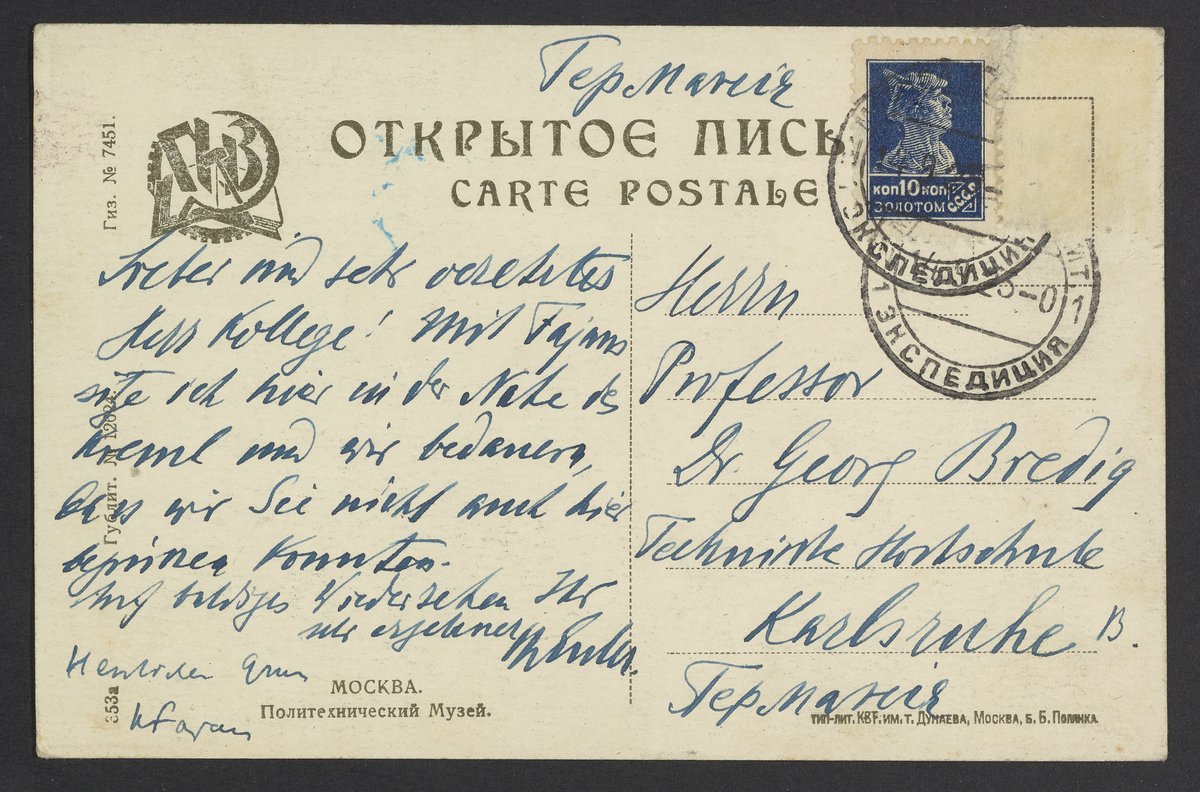 Германія
ОТКРЫТОЕ ПИСЬ
CARTE POSTALE
ГИЗ
Гиз. № 7451.
Гублит. №
353а
КОП 10 КОП
ЗОЛОТОМ
СССР
1 ЭКСПЕДИЦИЯ
1 ЭКСПЕДИЦИЯ 1
Lieber und sehr verehrter
Herr Kollege! Mit Fajans
sitze ich hier in der Nähe des
Kreml und wir bedauern,
dass wir Sie nicht auch hier
begrüssen konnten.
Auf baldiges Wiedersehen Ihr
sehr ergebener
Herzlichen Gruss
KFajans
МОСКВА.
Политехнический Музей.
Herrn
Professor
Dr. Georg Bredig
Technische Hochschule
Karlsruhe B.
Германія
ТИП-ЛИТ. КВТ. ИМ. Т. ДУНАЕВА, МОСКВА, Б. Б. ПОЛЯНКА.